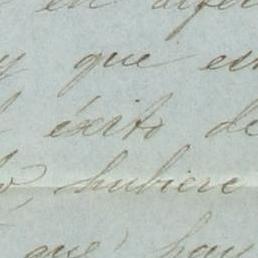 en difer
y que es
l éxito de
do, hubiere
que hay